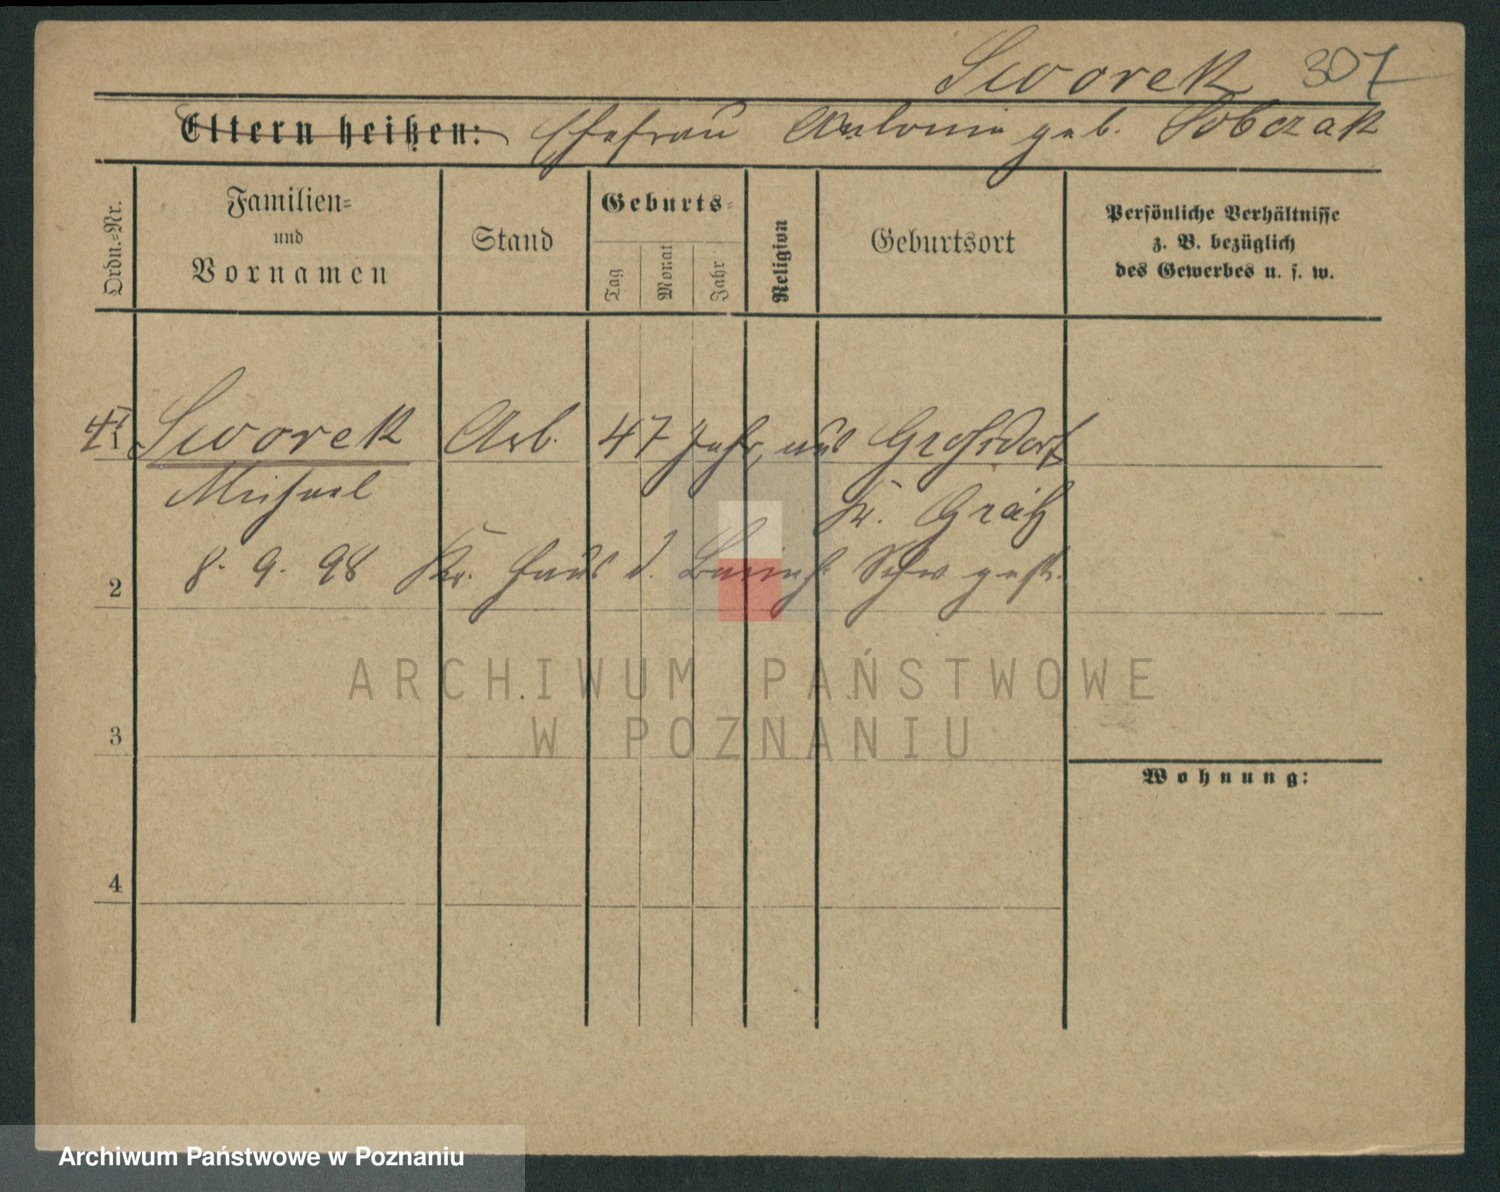 Sworek 307
Eltern heißen: Ehefrau Antonie geb. Sobczak
Ordn.-Nr.
Familien-
und
Vornamen
Stand
Geburts-
Tag
Monat
Jahr
Religion
Geburtsort
Persönliche Verhältnisse
z. B. bezüglich
des Gewerbes u. s. w.
Sworek Arb. 47 Jahr, aus Großdorf
Michael Kr. Grätz
8. 9. 98 Kr. Haus d. Barmh. Schw gest.
2
3
4
Wohnung:
ARCHIWUM PAŃSTWOWE
W POZNANIU
Archiwum Państwowe w Poznaniu